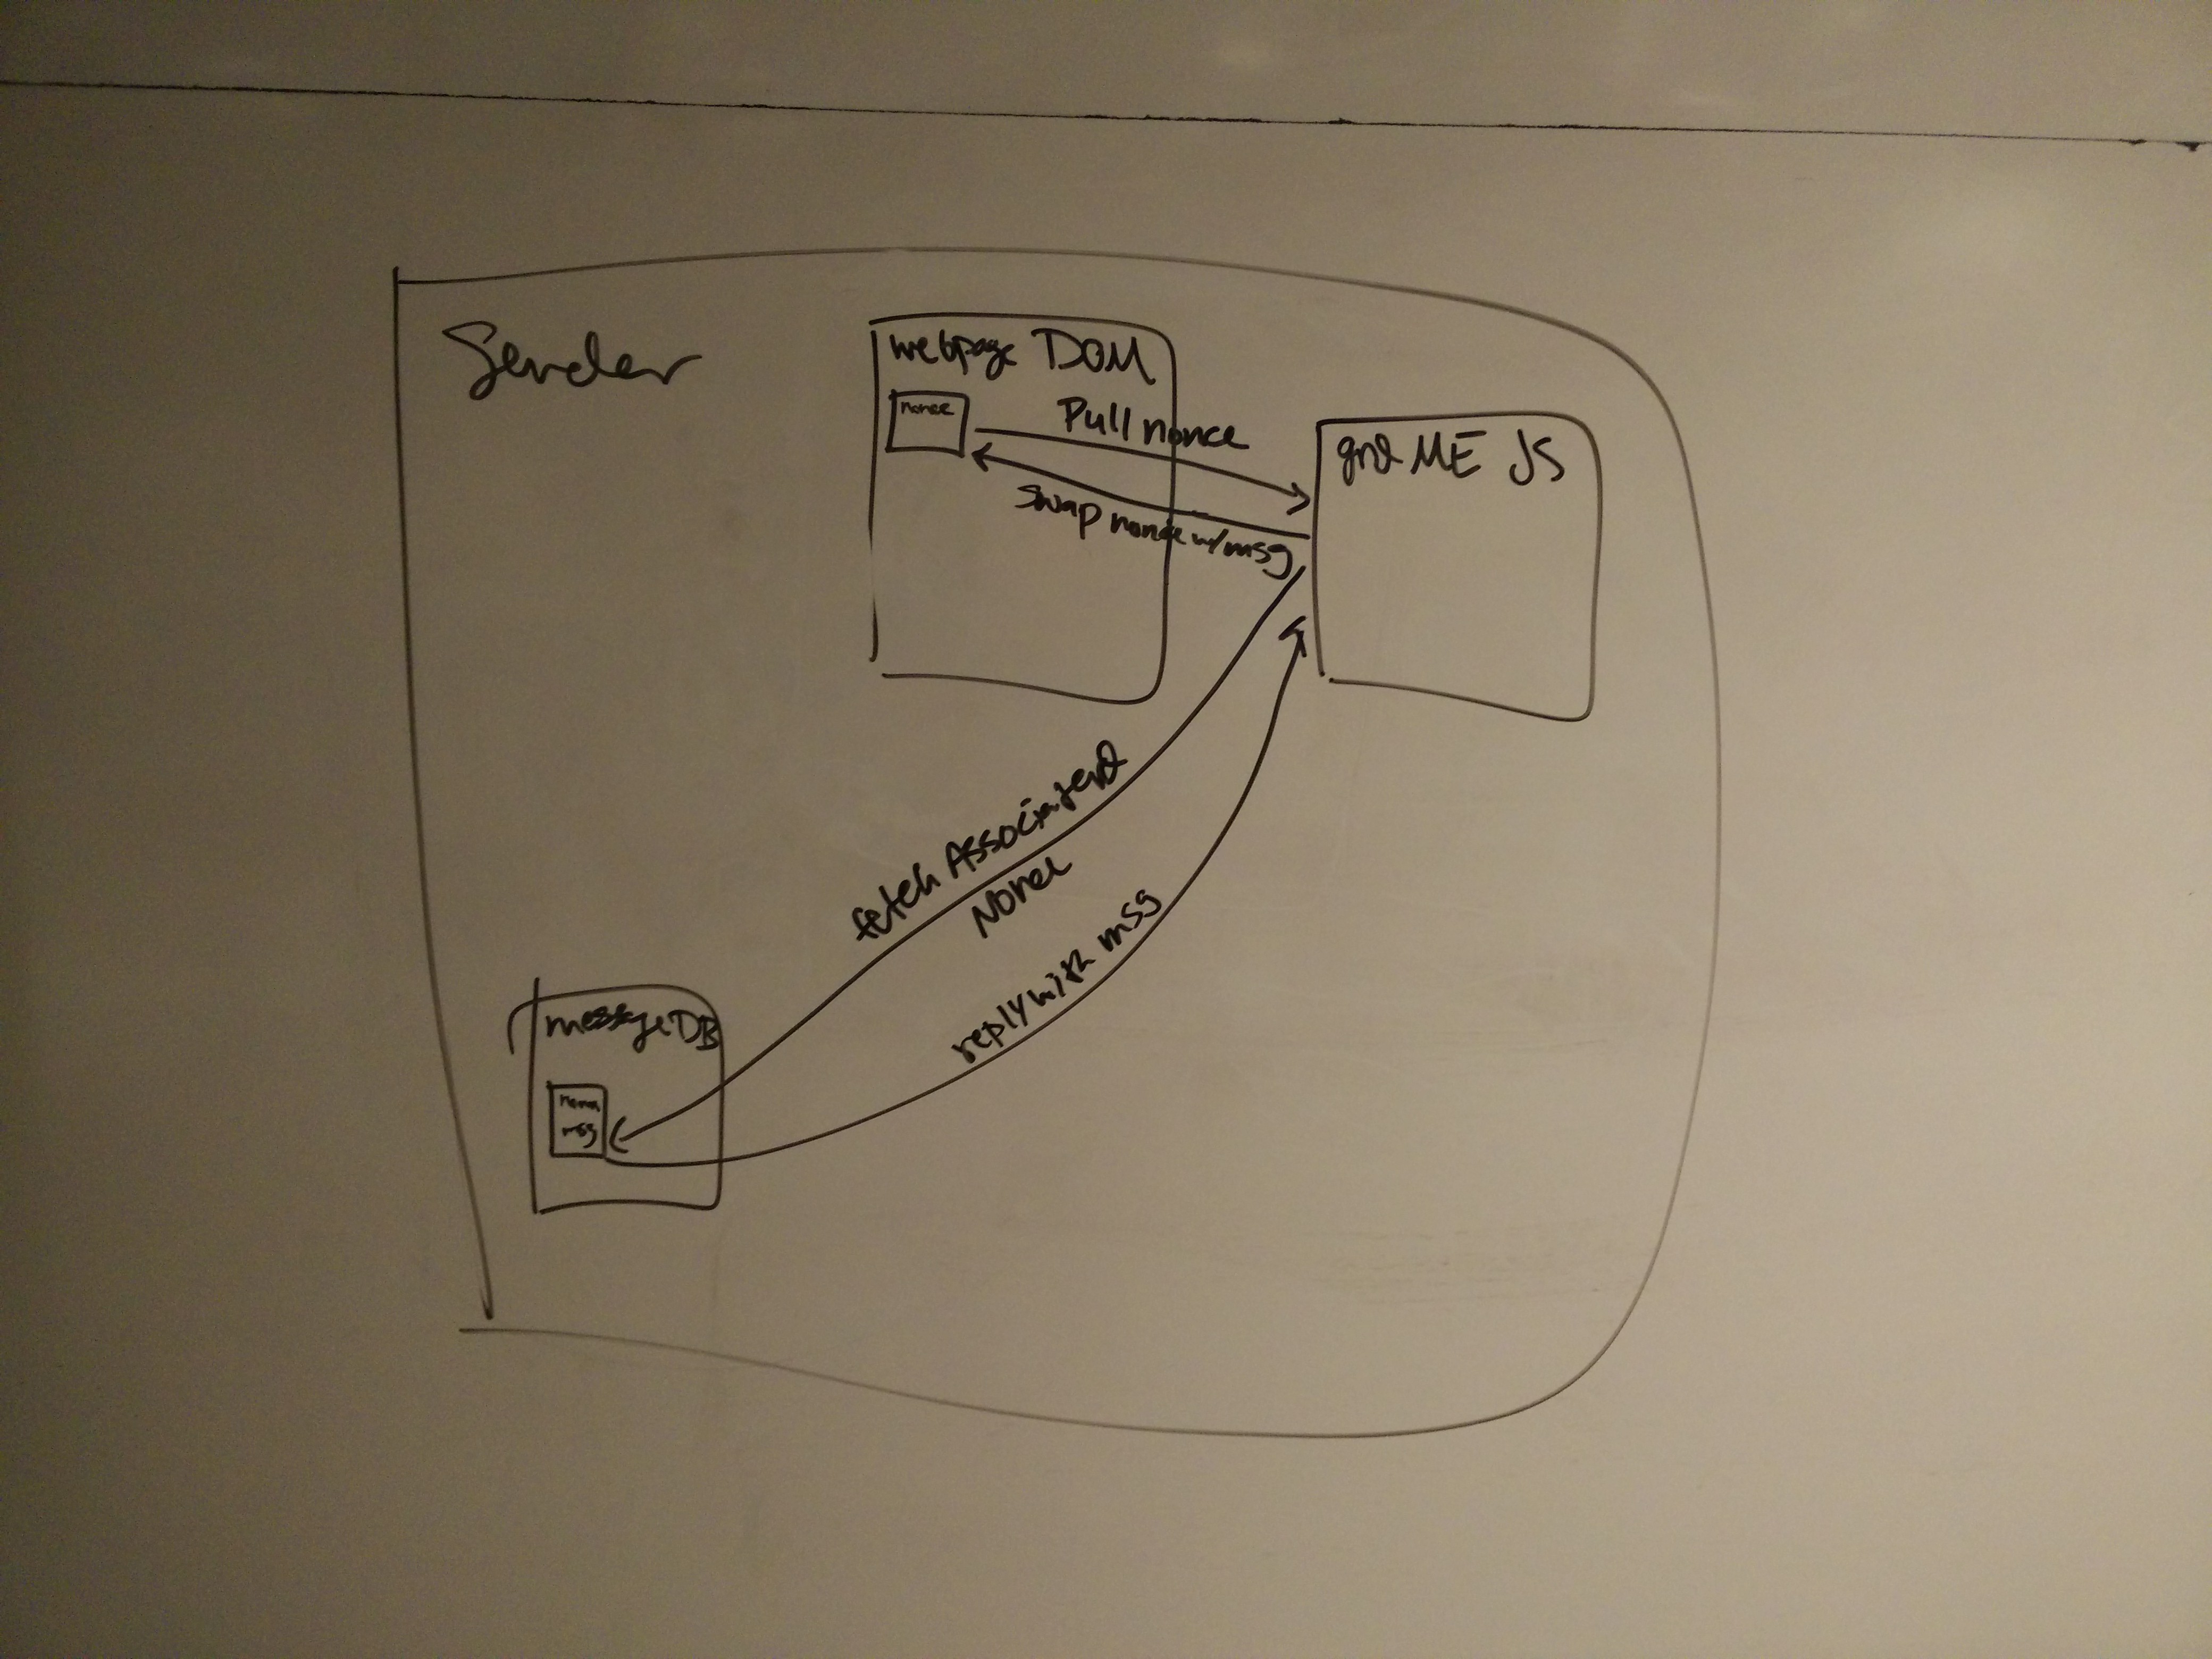 Sender
webpage DOM
nonce
Pull nonce
swap nonce w/msg
ME JS
fetch Associated
Nonce
reply with msg
messageDB
nonce
msg